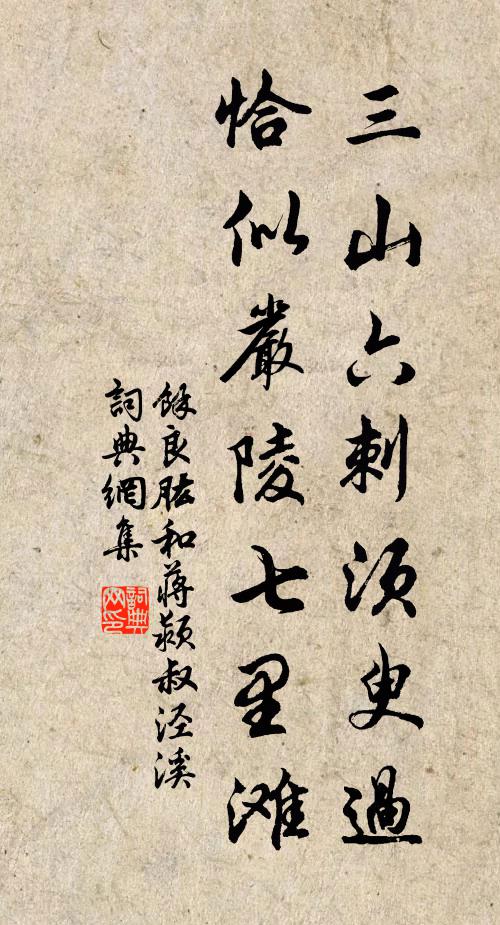 三山六刺須臾過
恰似嚴陵七里滩
餘良肱和蔣穎叔涇溪
詞典網集
詞典
网印